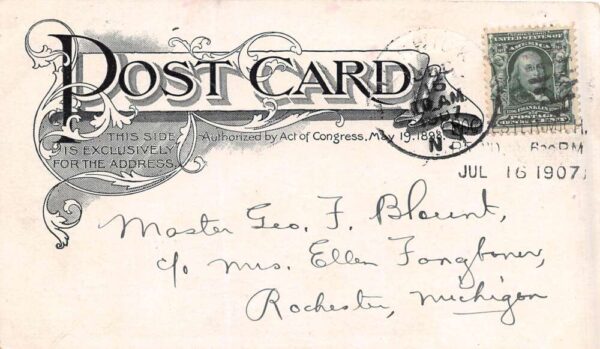 POST CARD
THIS SIDE
IS EXCLUSIVELY
FOR THE ADDRESS.
Authorized by Act of Congress, May 19, 1898.
UNITED STATES OF
AMERICA
POSTAGE
JUL
10 AM
N
JUL 16 1907
Master Geo. F. Blount,
c/o Mrs. Ellen Fongboner,
Rochester, Michigan